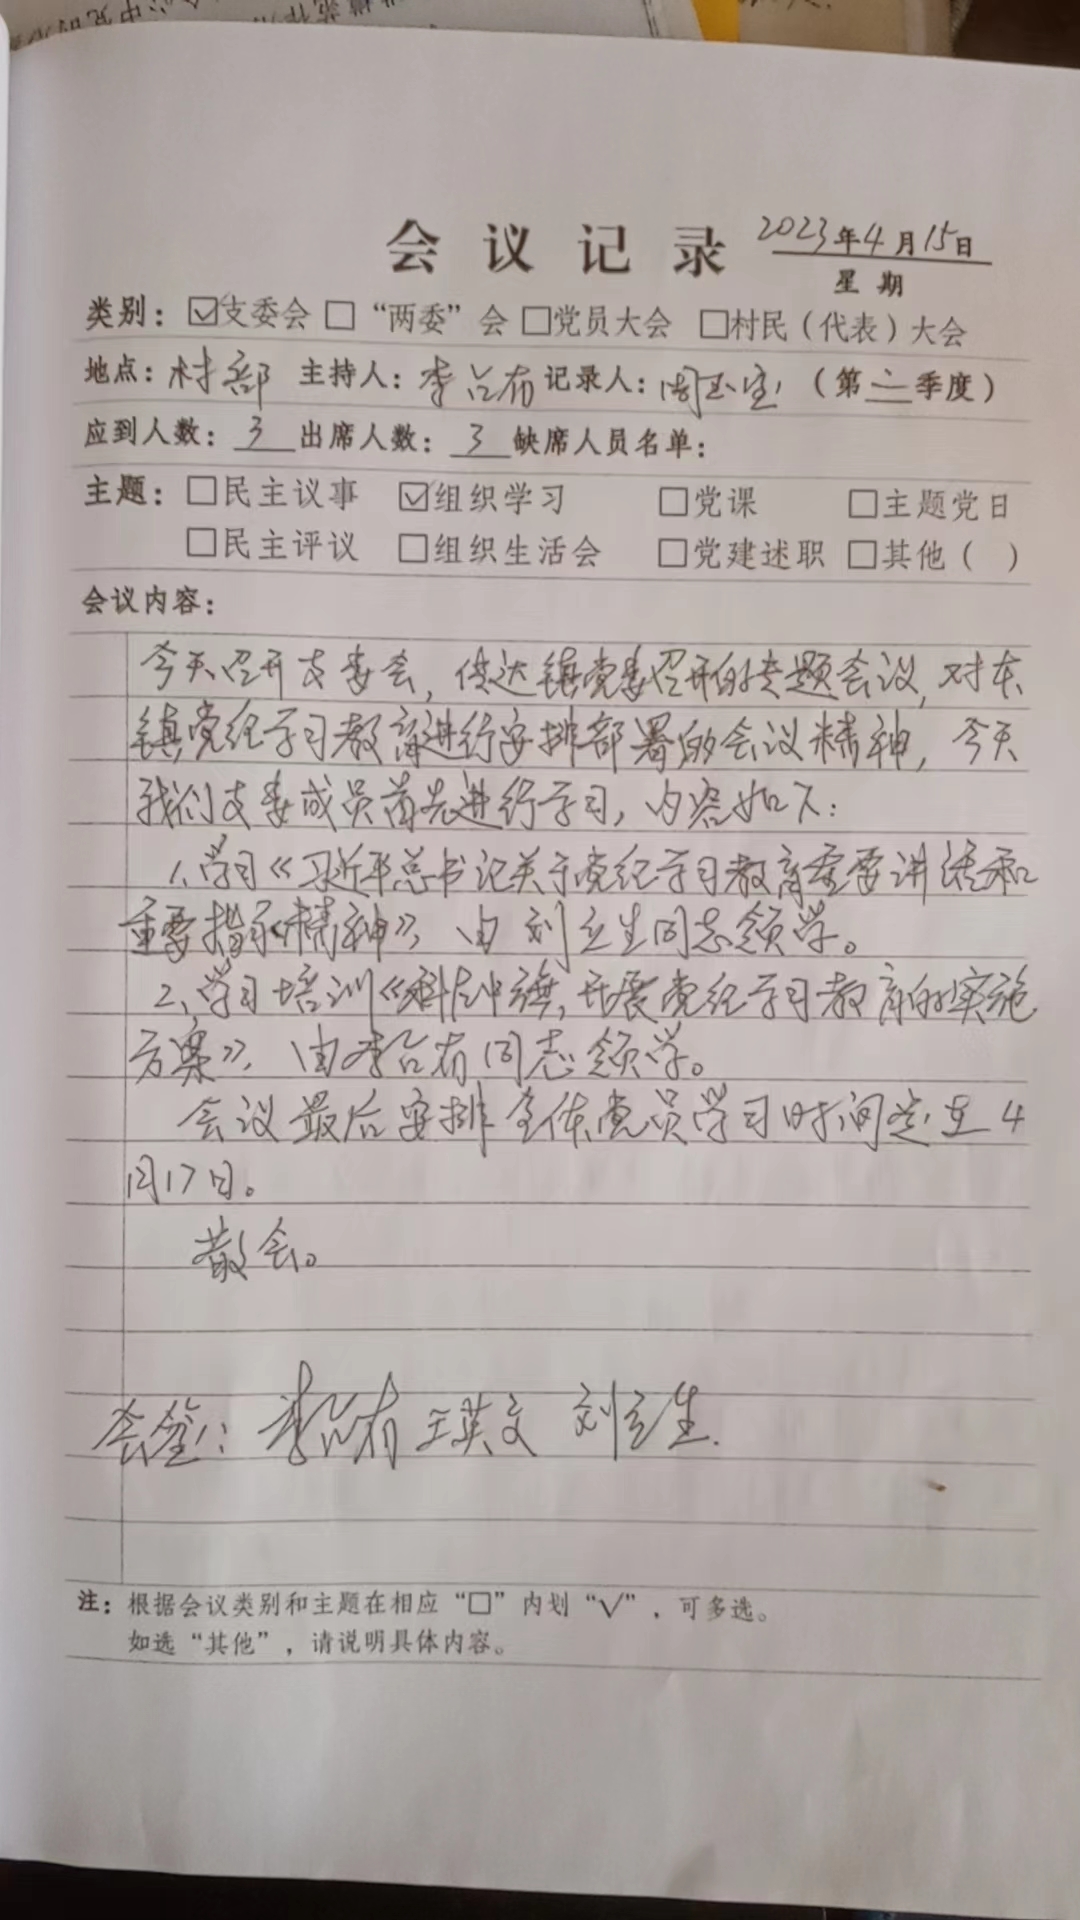 会议记录 2023年4月15日
星期
类别：☑支委会 □“两委”会 □党员大会 □村民（代表）大会
地点：村部 主持人：李占有 记录人：周玉宝 （第二季度）
应到人数：3 出席人数：3 缺席人员名单：
主题：□民主议事 ☑组织学习 □党课 □主题党日
□民主评议 □组织生活会 □党建述职 □其他（ ）
会议内容：
今天召开支委会，传达镇党委召开的专题会议，对本
镇党纪学习教育进行安排部署的会议精神，今天
我们支委成员首先进行学习，内容如下：
1、学习《习近平总书记关于党纪学习教育重要讲话和
重要指示精神》，由刘立生同志领学。
2、学习培训《镇，开展党纪学习教育的实施
方案》，由李占有同志领学。
会议最后安排全体党员学习时间定在4
月17日。
散会。
会签：李占有 王英文 刘立生.
注：根据会议类别和主题在相应“□”内划“√”，可多选。
如选“其他”，请说明具体内容。